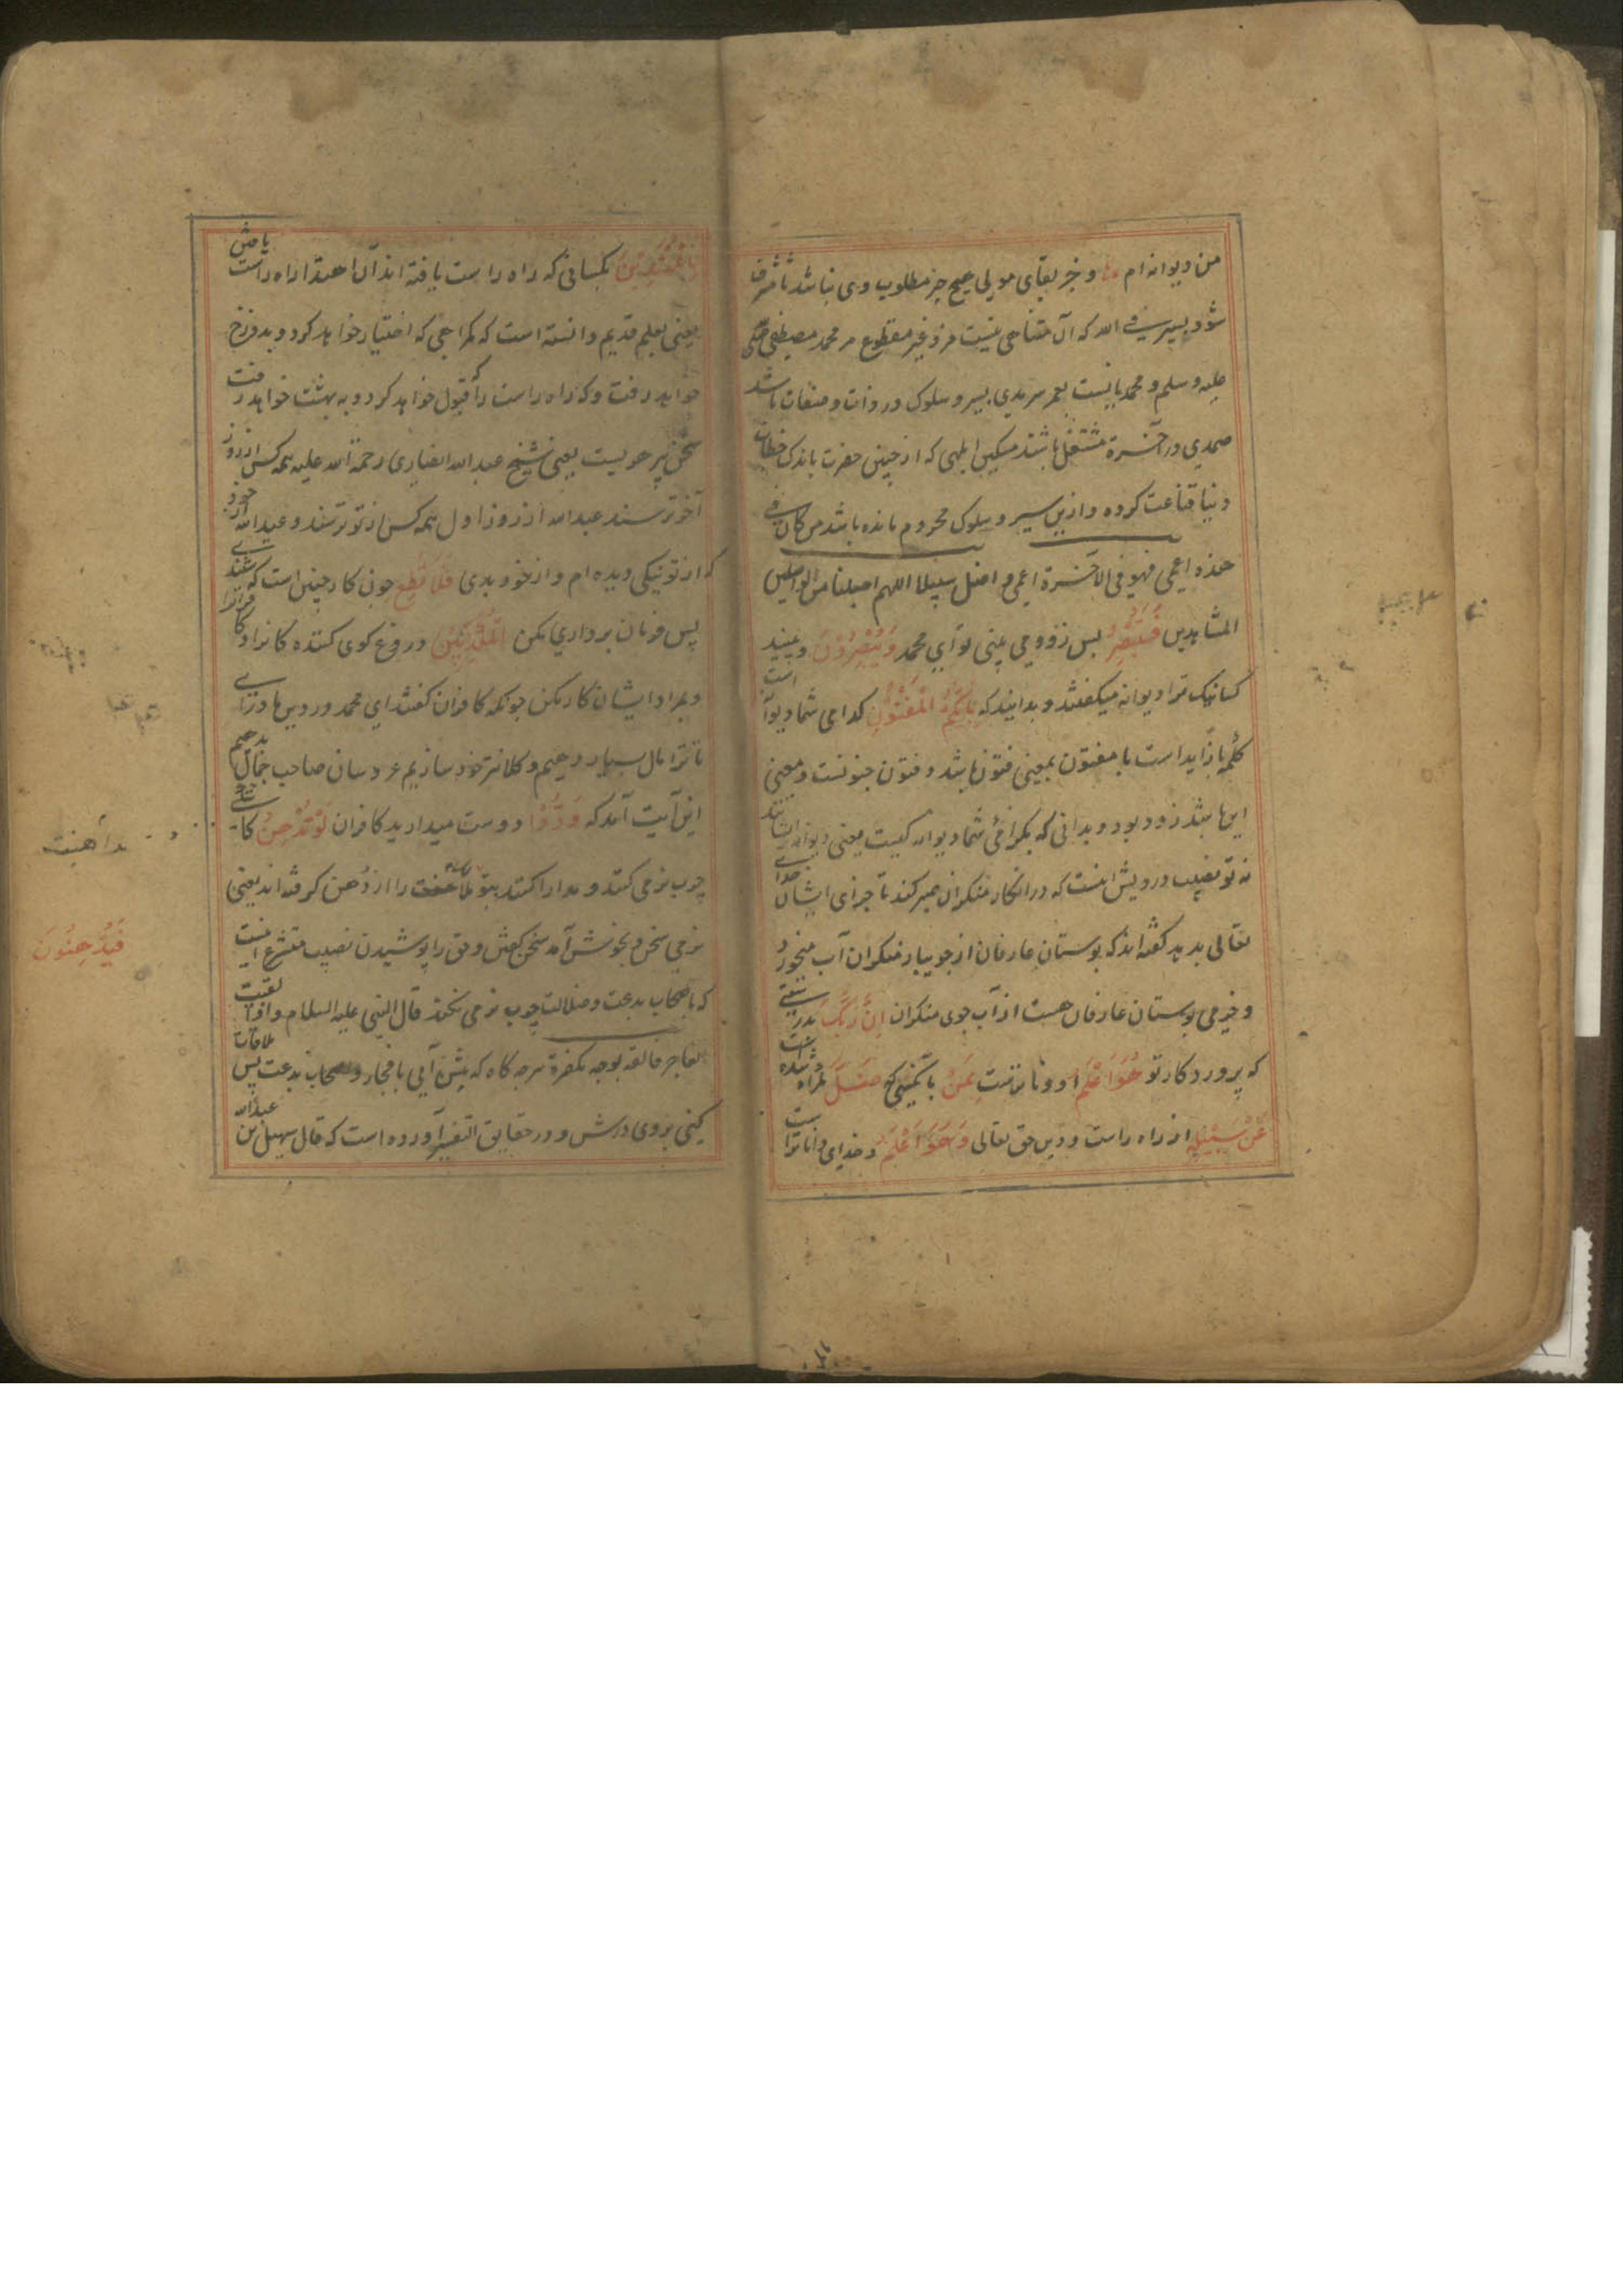 من دیوانه ام و جز بقای مولی هیچ چیز مطلوب وی نباشد تا مشرف
شود بسیر فی الله که آن متناهی نیست مزد غیر مقطوع مر محمد مصطفی صلی
علیه وسلم و محمدیانست بعمر سرمدی بسیر و سلوک در ذات و صفات باشد
صمدی در آخرة مشتغل باشند مسکین ابلهی که از چنین حضرت باندک حطام
دنیا قناعت کرده و ازین سیر و سلوک محروم مانده باشد من کان فی
هذه اعمی فهو فی الاخرة اعمی و اضل سبیلا اللهم اجعلنا من الواصلین
المشاهدین فَسَتُبْصِرُ پس زود می بینی تو ای محمد وَیُبْصِرُونَ و ببینند
کسانیک ترا دیوانه میکفتند و بدانند که بِاَیِّکُمُ الْمَفْتُونُ کدامی شما دیوانه است
کلمه با زاید است یا مفتون بمعنی فتون باشد و فتون جنونست و معنی
این باشد زود بود و بدانی که بکدامی شما دیوانه کیست یعنی دیوانه ایشانند
نه تو نصیب درویش اینست که در انکار منکران صبر کند تا جزای ایشان خدای
تعالی بدهد کفته اند که بوستان عارفان از جویبار منکران آب میخورد
و خرمی بوستان عارفان هست از آب جوی منکران اِنَّ رَبَّکَ بدرستیتی
که پروردکار تو هُوَ اَعْلَمُ او دانا ترست بِمَنْ بآنکسی که ضَلَّ کمراه شده است
عَنْ سَبِیْلِهِ از راه راست و دین حق تعالی وَهُوَ اَعْلَمُ و خدای دانا تراست
بِالْمُهْتَدِیْنَ بکسانی که راه راست یافته اند آن اهتدا راه راست
یعنی بعلم قدیم دانسته است که کمراهی که اختیار خواهد کرد و بدوزخ
خواهد رفت و که راه راست را قبول خواهد کرد و به بهشت خواهد رفت
سخن پیر هریست یعنی شیخ عبدالله انصاری رحمة الله علیه همه کس از روز
آخر ترسند عبدالله از روز اول همه کس از تو ترسند و عبدالله از خود
که از تو نیکی دیده ام و از خود بدی فَلَا تُطِعِ چون کار چنین است که
پس فرمان برداری مکن الْمُکَذِّبِیْنَ دروغ کوی کننده کانرا
و بمراد ایشان کار مکن چونکه کافران کفتند ای محمد در دین ما درآی
تا ترا مال بسیار دهیم و کلانتر خود سازیم عروسان صاحب جمال بدهیم
این آیت آمد که وَدُّوْا دوست میدارید کافران لَوْ تُدْهِنُ
چرب نرمی کنند و مدارا کنند بتو مداهنت را از دُهن کرفته اند یعنی
نرمی سخن و بخوش آمد سخن کفتن و حق را پوشیدن نصیب متشرع اینست
که با اصحاب بدعت و ضلالت چرب نرمی نکند قال النبی علیه السلام و اذا لقیت
الفاجر فالقه بوجه مکفرة هرچه کاه که پیش آیی با فجار و اصحاب بدعت پس ملاقات
کنی بروی درش و در حقایق التفسیر آورده است که قال سهل بن عبدالله
مداهنت
فَیُدْهِنُونَ